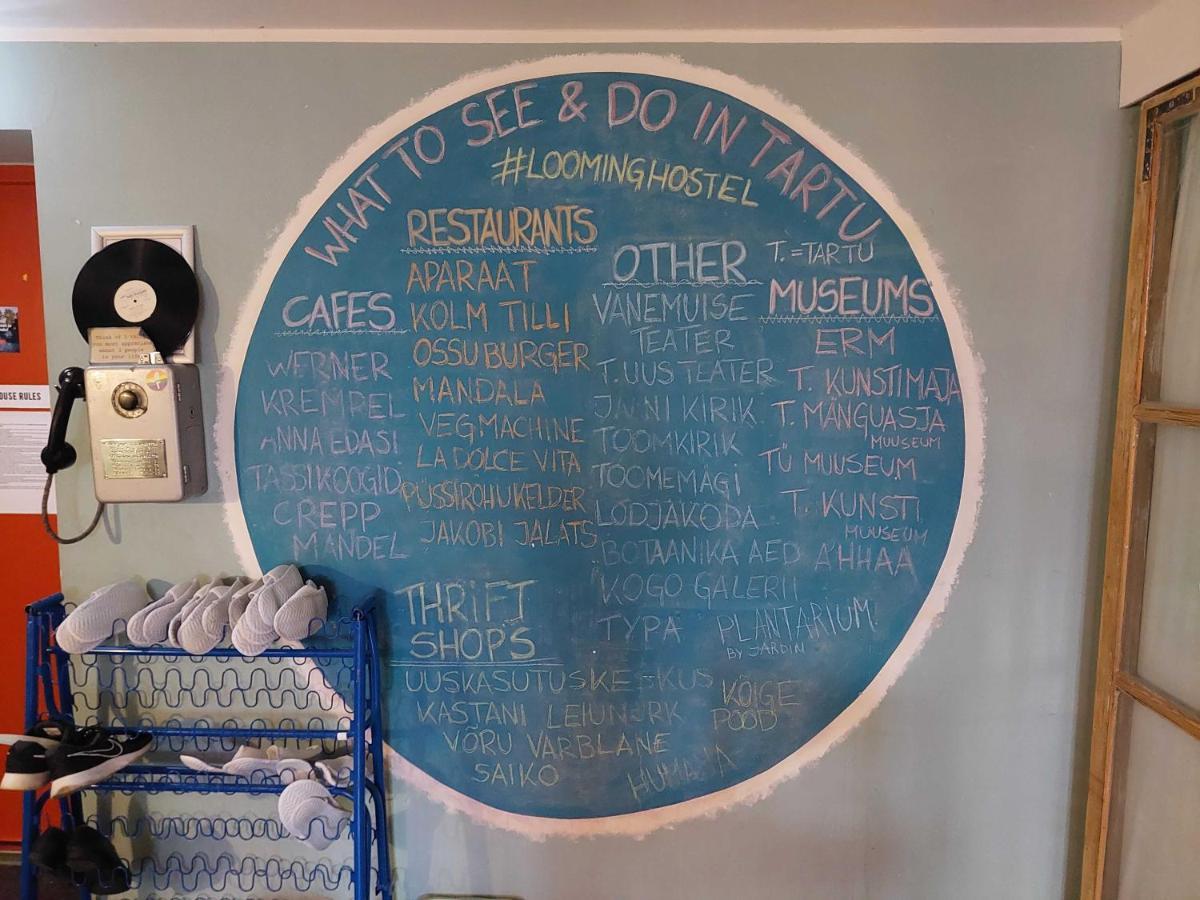 WHAT TO SEE & DO IN TARTU
#LOOMINGHOSTEL
CAFES
WERNER
KREMPEL
ANNA EDASI
TASSIKOOGID
CREPP
MANDEL
RESTAURANTS
APARAAT
KOLM TILLI
OSSU BURGER
MANDALA
VEGMACHINE
LA DOLCE VITA
PÜSSIROHUKELDER
JAKOBI JALATS
OTHER
VANEMUISE
TEATER
T. UUS TEATER
JAANI KIRIK
TOOMKIRIK
TOOMEMÄGI
LODJAKODA
BOTAANIKA AED
KOGO GALERII
TYPA
PLANTARIUM
BY JARDIN
T. = TARTU
MUSEUMS
ERM
T. KUNSTIMAJA
T. MÄNGUASJA
MUUSEUM
TÜ MUUSEUM
T. KUNSTI
MUUSEUM
AHHAA
THRIFT
SHOPS
UUSKASUTUSKESKUS
KASTANI LEIUNURK
VÕRU VARBLANE
SAIKO
KÕIGE
POOD
HUMANA
HOUSE RULES